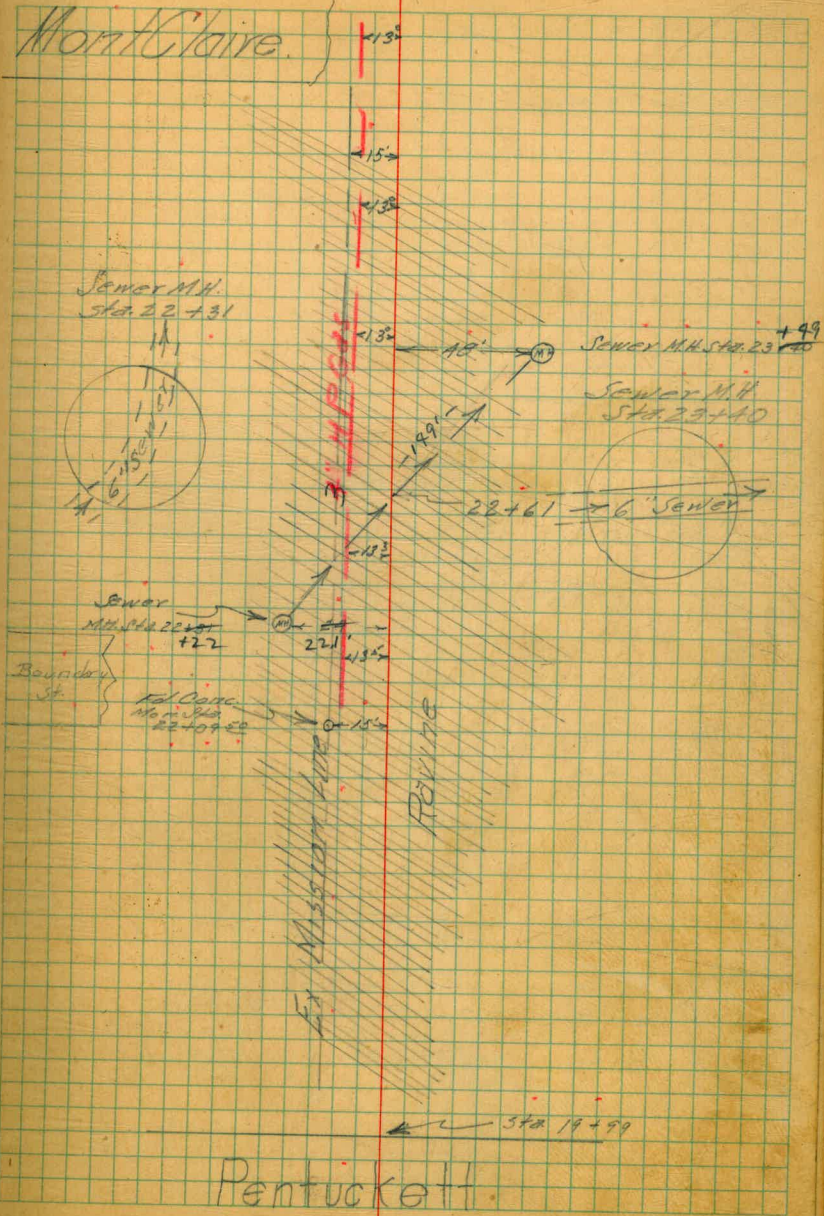 MontClaire.
13⁸
15'
13⁸
Sewer M.H.
Sta. 22 + 31
13⁸
48'
MH
Sewer M.H. Sta. 23 + 49
40
Sewer M.H.
Sta. 23 + 40
6" Sewer
149'
3" H.P. Gas
22 + 61
6" Sewer
13³
Sewer
M.H. Sta. 22 + 31
+ 22
MH
22.1'
13⁵
Boundary
St.
Fd. Conc.
Mon. Sta.
22 + 09.50
15'
Ex Mission Line
Ravine
Sta. 19 + 99
Pentuckett